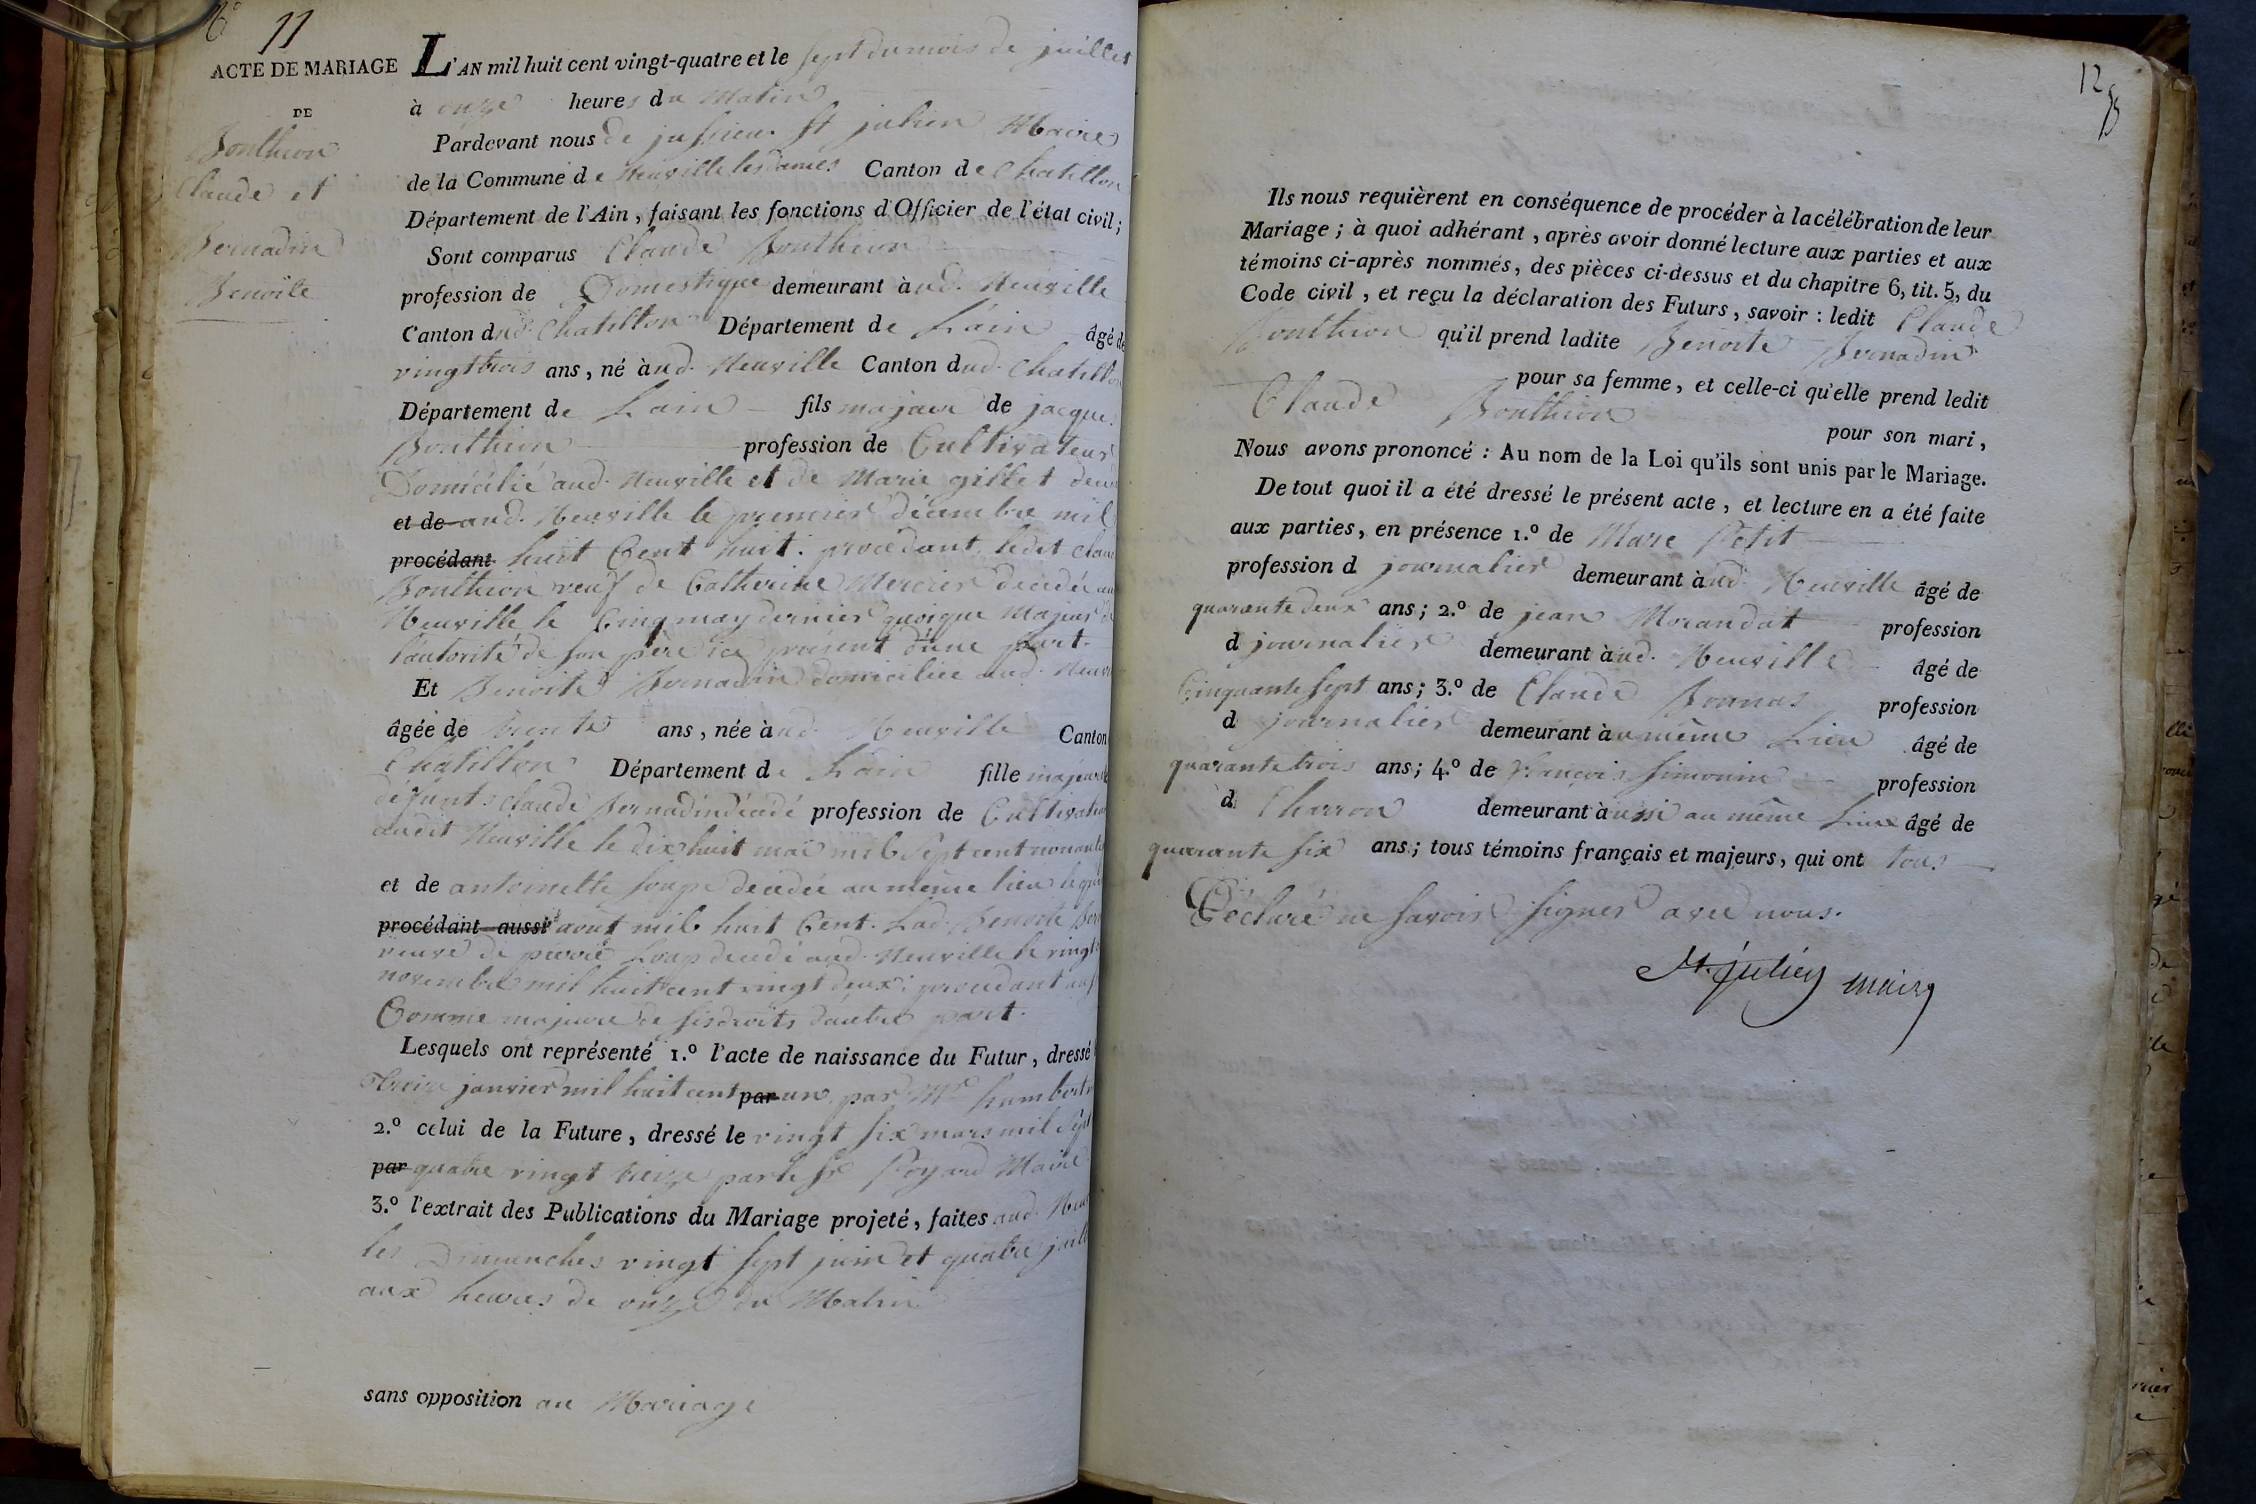 N.° 11
ACTE DE MARIAGE
DE
Bonthion
Claude et
Bernadin
Benoite
L'AN mil huit cent vingt-quatre et le sept du mois de juillet
à onze heures du Matin
Pardevant nous de jussieu St julien Maire
de la Commune de Neuville les dames Canton de Chatillon
Département de l'Ain, faisant les fonctions d'Officier de l'état civil;
Sont comparus Claude Bonthion
profession de Domestique demeurant à ud. Neuville
Canton dud. Chatillon Département de L'ain âgé de
vingt trois ans, né à ud. Neuville Canton dud. Chatillon
Département de Lain fils majeur de jacque
Bonthion profession de Cultivateur
Domicilié aud. Neuville et de Marie gillet
et de aud. Neuville le premier décembre mil
procédant huit Cent huit. procédant ledit
Bonthion veuf de Catherine Mercier décédée
Neuville le Cinq may dernier quoique Majeur de
l'autorité de son père ici présent d'une part.
Et Benoite Bernadin domiciliée aud.
âgée de trente ans, née à ud. Neuville Canton
Chatillon Département de Lain fille majeure
défunts Claude Bernadin décédé profession de
audit Neuville le dix huit mai mil sept cent nonante
et de antoinette Loup décédée au même lieu le
procédant aussi aout mil huit Cent. Lad. Benoite
veuve de pierre Loup décédé aud. Neuville le vingt
novembre mil huit cent vingt deux: procedant
Comme majeure de ses droits d'autre part.
Lesquels ont représenté 1.° l'acte de naissance du Futur, dressé
treize janvier mil huit cent par un, par Mr humbert
2.° celui de la Future, dressé le vingt six mars mil sept
par quatre vingt treize par le Sr Poyard Maire
3.° l'extrait des Publications du Mariage projeté, faites aud.
les Dimanches vingt sept juin et quatre
aux heures de onze du Matin
sans opposition au Mariage
12
Ils nous requièrent en conséquence de procéder à la célébration de leur
Mariage; à quoi adhérant, après avoir donné lecture aux parties et aux
témoins ci-après nommés, des pièces ci-dessus et du chapitre 6, tit. 5, du
Code civil, et reçu la déclaration des Futurs, savoir: ledit Claude
Bonthion qu'il prend ladite Benoite Bernadin
pour sa femme, et celle-ci qu'elle prend ledit
Claude Bonthion pour son mari,
Nous avons prononcé: Au nom de la Loi qu'ils sont unis par le Mariage.
De tout quoi il a été dressé le présent acte, et lecture en a été faite
aux parties, en présence 1.° de Marc Petit
profession d journalier demeurant à ud. Neuville âgé de
quarante deux ans; 2.° de jean Morandat profession
d journalier demeurant à ud. Neuville âgé de
Cinquante sept ans; 3.° de Claude Bonnas profession
d journalier demeurant au même Lieu âgé de
quarante trois ans; 4.° de françois Simonin profession
d Charron demeurant aussi au même Lieu âgé de
quarante six ans; tous témoins français et majeurs, qui ont tous
Déclaré ne savoir signer avec nous.
St. julien maire